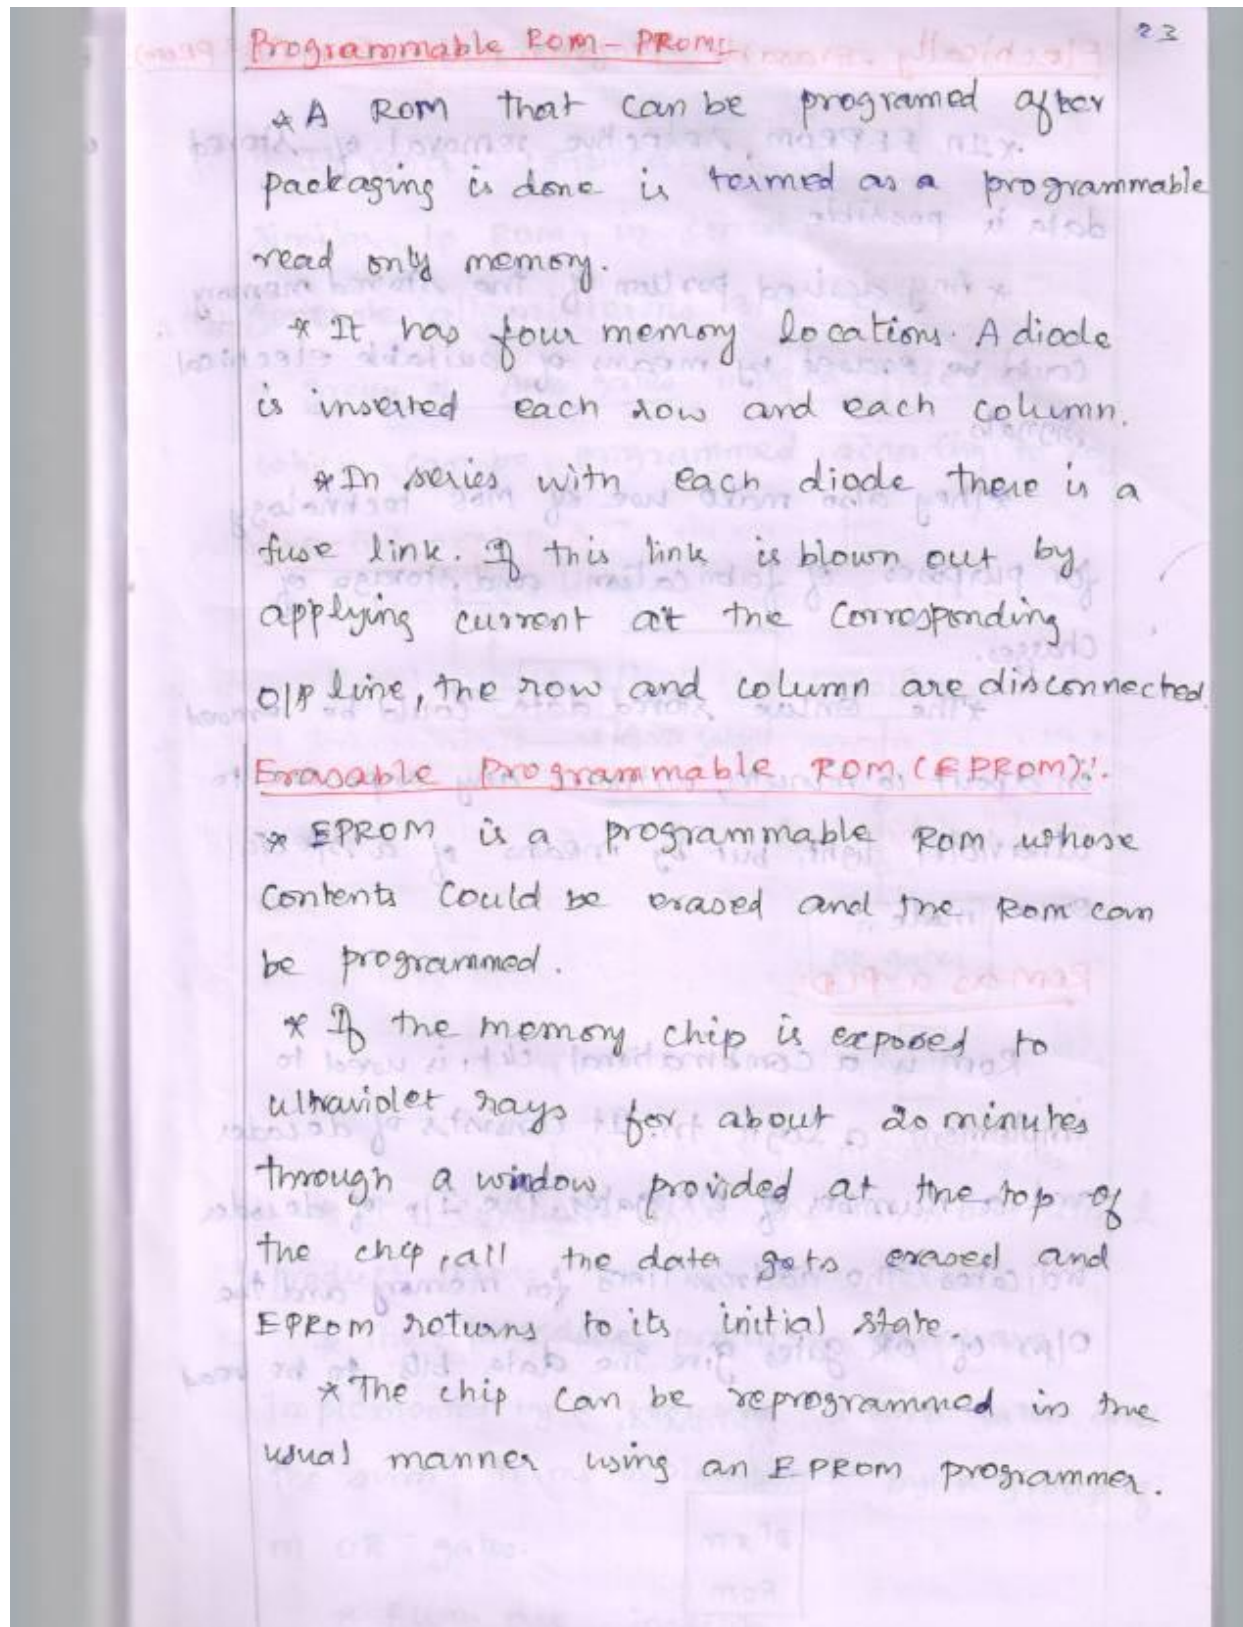 23
Programmable ROM - PROM:-
* A ROM that can be programed after
packaging is done is termed as a programmable
read only memory.
* It has four memory location. A diode
is inserted each row and each column.
* In series with each diode there is a
fuse link. If this link is blown out by
applying current at the corresponding
O/P line, the row and column are disconnected.
Erasable Programmable ROM (EPROM):-
* EPROM is a programmable ROM whose
contents could be erased and the ROM can
be programmed.
* If the memory chip is exposed to
ultraviolet rays for about 20 minutes
through a window provided at the top of
the chip, all the data gets erased and
EPROM returns to its initial state.
* The chip can be reprogrammed in the
usual manner using an EPROM programmer.